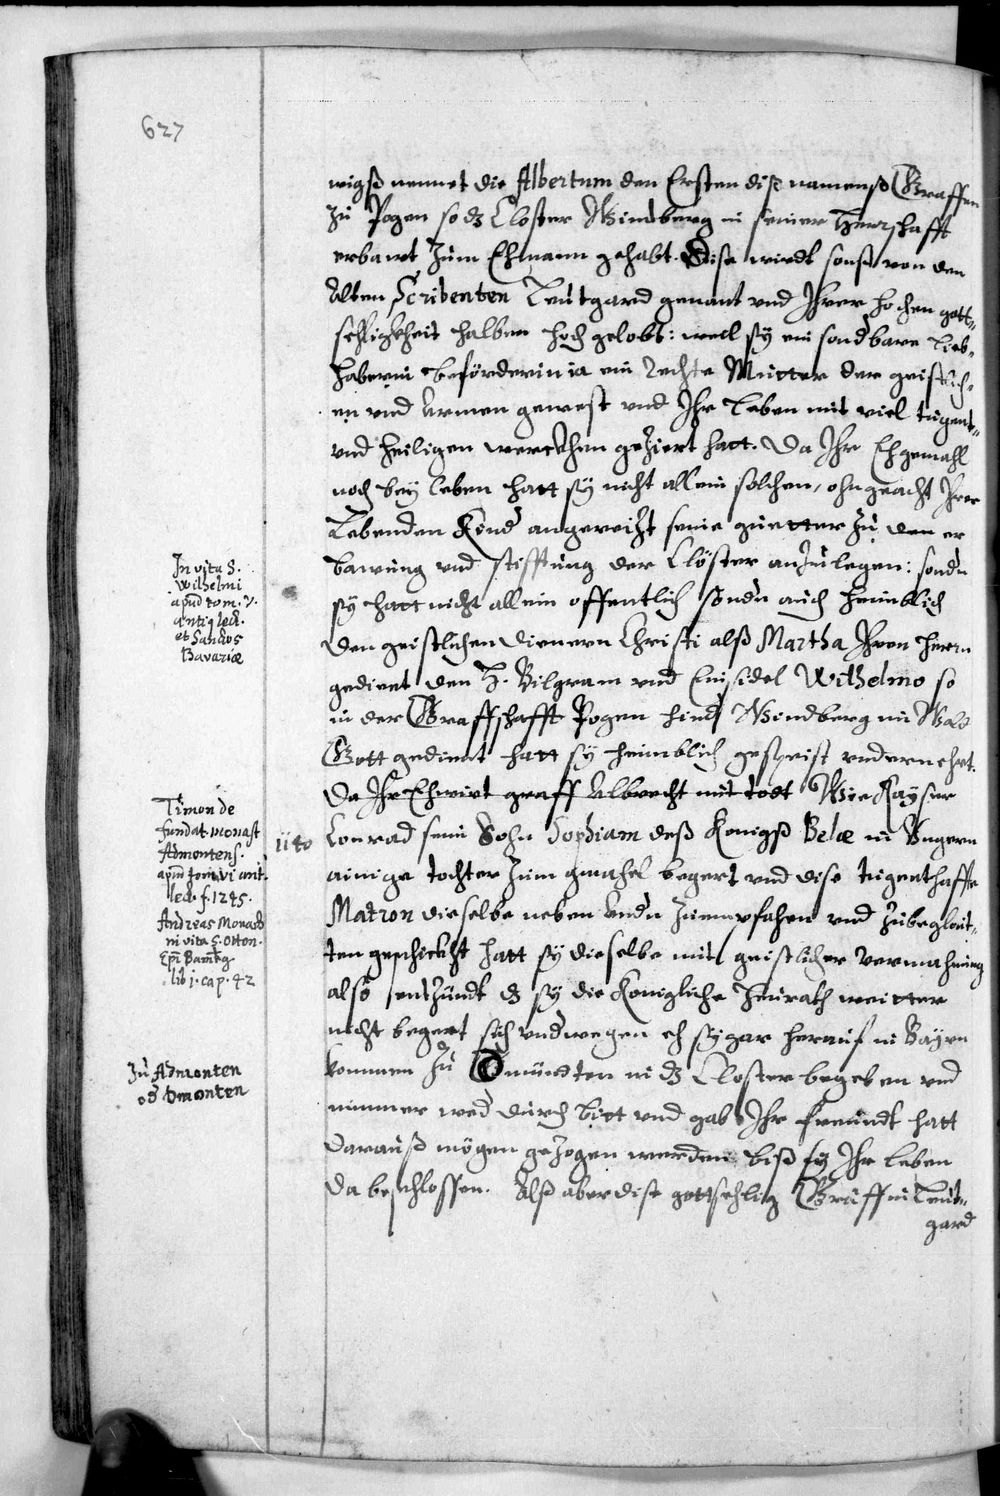 627
wigß nennet die Albertum den Ersten diß namenß Graffen
zu Pogen so dz Closter Windberg in seiner Herrschafft
erbawt zum Ehmann gehabt. Dise wirdt sonst von den
Alten Scribenten Leutgard genant vnd Ihrer hochen gott-
sehligkheit halben hoch gelobt: weil sy ein sondbare Lieb-
haberin beförderin ia ein rechte Mutter der geistlich-
en vnd Armen gewest vnd Ihr Leben mit viel tugent-
vnd heiligen werckhen geziert hatt. Da Ihr Ehgemahl
noch bey leben hatt sy nicht allein solchen, ohngeacht Ihrer
Lebenden Kind angereitzt seine güetter zu den er
bawung vnd stifftung der Clöster anzulegen: sondn
sy hatt nicht allein offentlich sondn auch heimblich
den geistlichen dienern Christi alß Martha Ihren herrn
gedient den H. Bilgram vnd Einsidel Wilhelmo so
in der Graffschafft Pogen hind Windberg im Wald
Gott gedient hatt sy heimblich gespeist vnd ernehrt.
Da Ihr Ehwirt graff Albrecht mit todt Wie Kayser
Conrad seim Sohn Sophiam deß Konigß Belæ in Vngern
ainige tochter zum gmahel begert vnd dise tugenthaffte
Matron dieselbe neben Andn zuempfahen vnd zubeglait-
ten geschickht hatt sy dieselbe mit geistlicher vermahnung
also entzündt dz sy die Konigliche heirath weitter
nicht begert sich vndwegen eh sy gar herauf in Bayrn
kommen zu Admündten in dz Closter begeben vnd
nimmer wed durch bitt vnd gab Ihr freundt hatt
darauß mögen gezogen werden biß sy Ihr leben
da beschlossen. Alß aber dise gottsehlig Gräffin Leut-
gard
In vita S.
Wilhelmi
apud tom. 7.
antiq lect.
et Sanctos
Bavariæ
Timon de
fundat. monast
Admontens.
apud tom. vi ant.
lect. f. 1245.
Andreas Monach
in vita S. Otton.
Epi Bamberg
lib j. cap. 42
1140
Zu Admonten
od Omonten